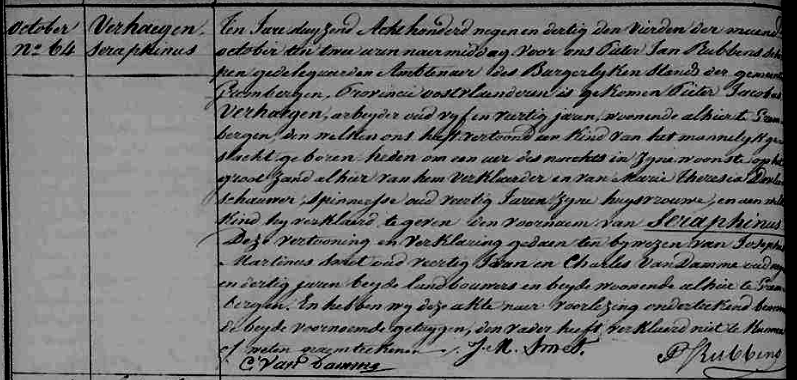 October
N° 64
Verhaegen
Seraphinus
Ten Jare duyzend Acht honderd negen en dertig den vierden der maend
october ten twee uren naermiddag, voor ons Pieter Jan Rubbens sche
pen gedelegueerden Ambtenaer des Burgerlyken Stands der gemeent
Grembergen, Provincie oostvlanderen is gekomen Pieter Jacobus
Verhaegen, arbeyder oud vyf en veertig jaren, woonende alhier te Grem
bergen, den welken ons heeft vertoond een kind van het mannelyk ge
slacht geboren heden om een uer des nachts in zyne woonste op het
groot Zand alhier van hem verklaerder en van Marie Theresia
schauwer, Spinnersse oud veertig Jaren zyne huysvrouwe, en aen welk
kind hy verklaerd te geven den voornaem van Seraphinus
Deze vertooning en verklaring gedaen ten bywezen van Joseph
Martinus Smet oud veertig Jaren en Charles Van Damme oud
en dertig jaren beyde landbouwers en beyde woonende alhier te Grem
bergen. En hebben wy deze akte naer voorlezing onderteekend benevens
de beyde voornoemde getuygen, den vader heeft verklaerd niet te kunnen
of weten naemteekenen
J. M. Smet.
C. Van Damme
P Rubbens